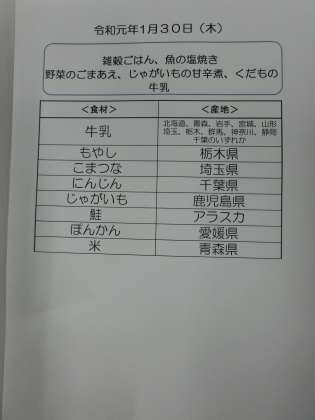 令和元年1月30日（木）
雑穀ごはん、魚の塩焼き
野菜のごまあえ、じゃがいもの甘辛煮、くだもの
牛乳
＜食材＞ ＜産地＞
牛乳 北海道、青森、岩手、宮城、山形
埼玉、栃木、群馬、神奈川、静岡
千葉のいずれか
もやし 栃木県
こまつな 埼玉県
にんじん 千葉県
じゃがいも 鹿児島県
鮭 アラスカ
ぽんかん 愛媛県
米 青森県